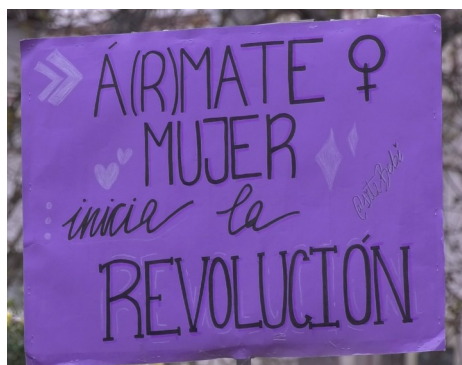 Á(R)MATE ♀
MUJER
inicia la
REVOLUCIÓN